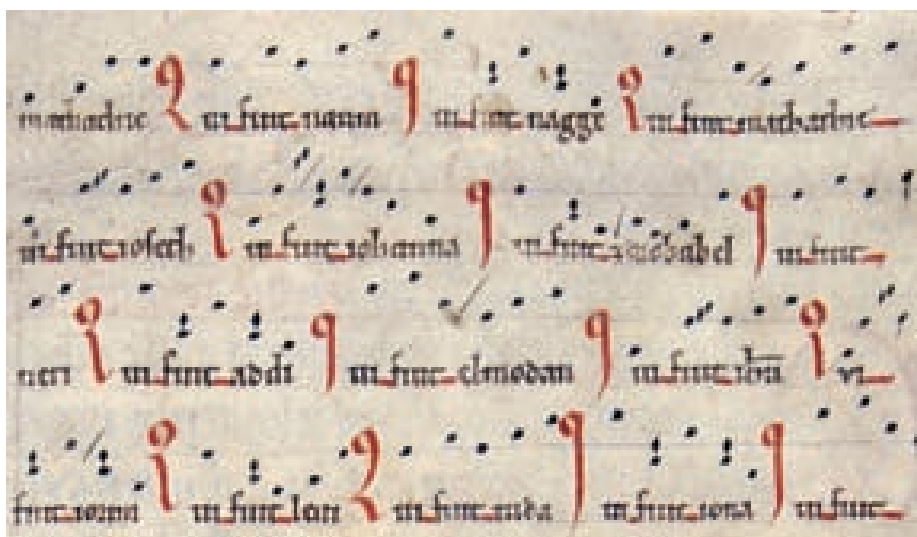 mathathie Qui fuit naum Qui fuit nagge Qui fuit mathathie
ui fuit iosech Qui fuit iohanna Qui fuit zorobabel Qui fuit
neri Qui fuit addi Qui fuit elmodan Qui fuit Qui
fuit Qui fuit Qui fuit iuda Qui fuit iona Qui fuit